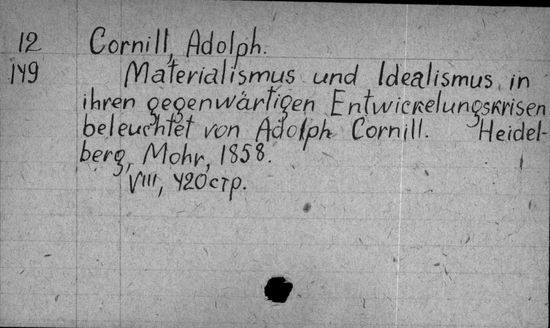 12 Cornill, Adolph.
149 Materialismus und Idealismus in
ihren gegenwärtigen Entwickelungskrisen
beleuchtet von Adolph Cornill. Heidel-
berg, Mohr, 1858.
VIII, 420 стр.